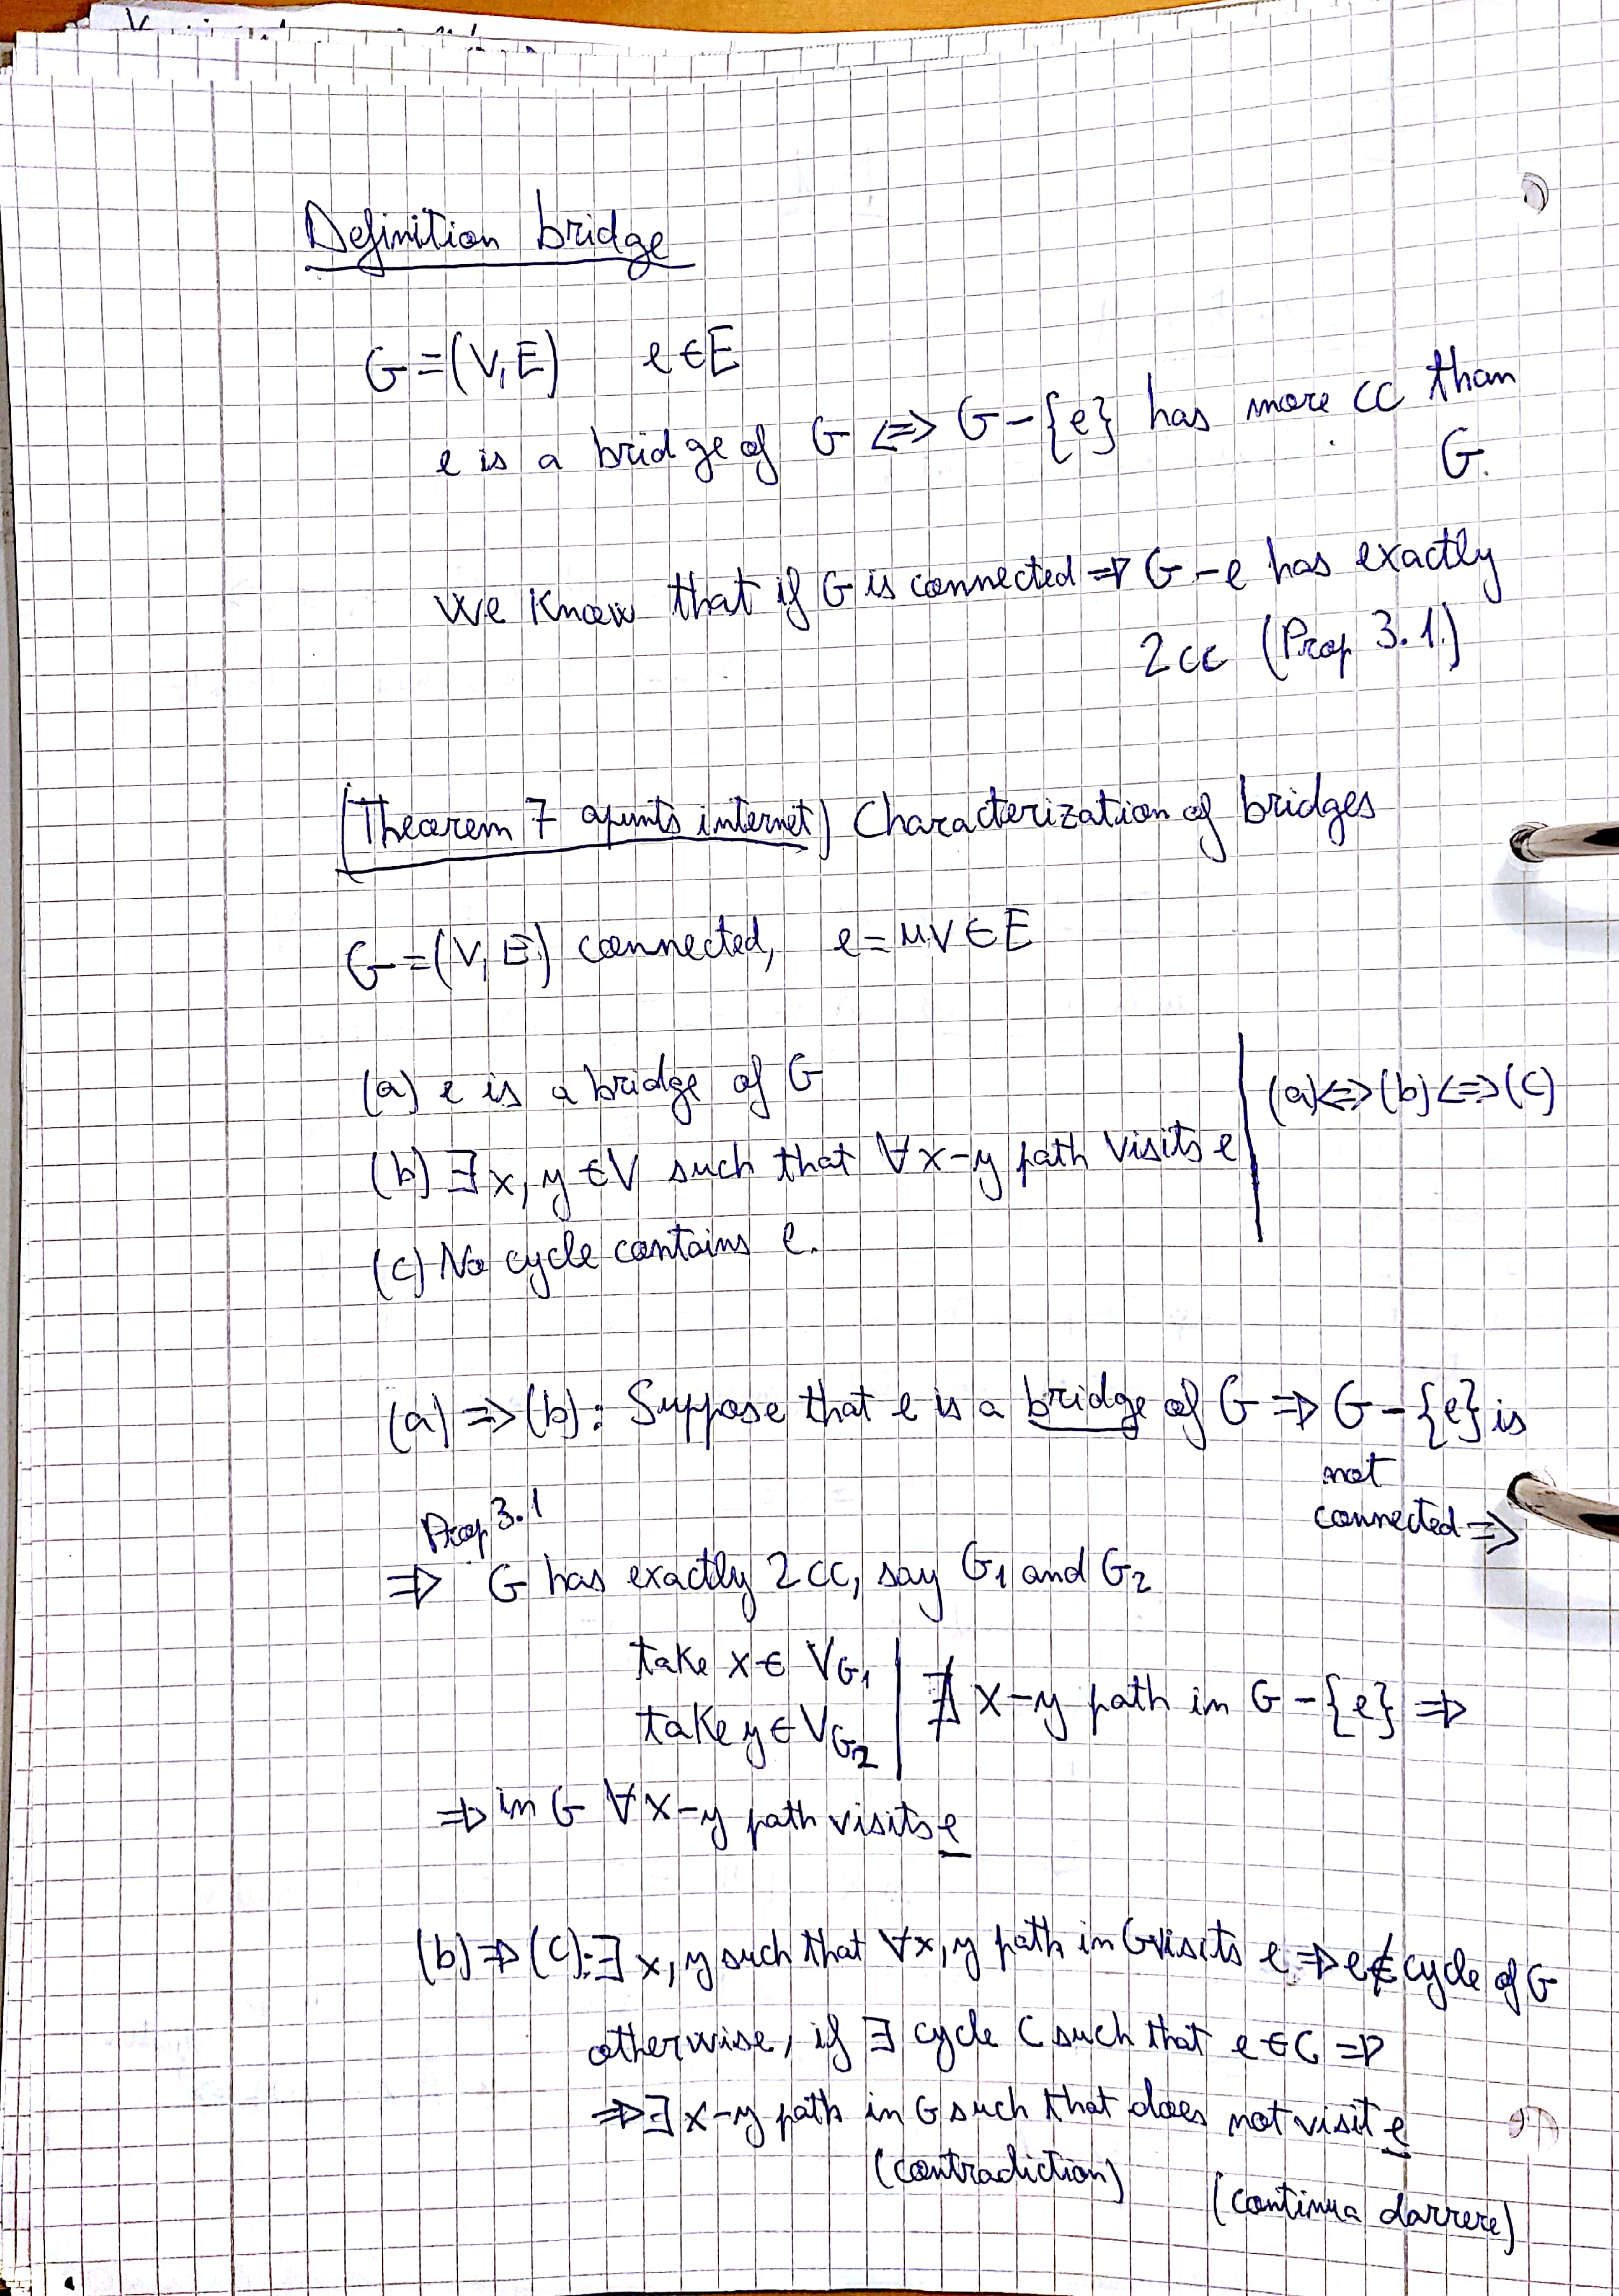 Definition bridge
G = (V, E) e ∈ E
e is a bridge of G <=> G - {e} has more cc than
G.
We know that if G is connected => G - e has exactly
2 cc (Prop 3.1.)
(Theorem 7 apunts internet) Characterization of bridges
G = (V, E) connected, e = uv ∈ E
(a) e is a bridge of G
(b) ∃ x, y ∈ V such that ∀ x-y path visits e
(c) No cycle contains e.
(a) <=> (b) <=> (c)
(a) => (b): Suppose that e is a bridge of G => G - {e} is
not
connected =>
Prop 3.1
=> G has exactly 2 cc, say G1 and G2
take x ∈ VG1
take y ∈ VG2
∄ x-y path in G - {e} =>
=> in G ∀ x-y path visits e
(b) => (c): ∃ x, y such that ∀ x, y path in G visits e => e ∉ cycle of G
otherwise, if ∃ cycle C such that e ∈ C =>
=> ∃ x-y path in G such that does not visit e
(contradiction)
(continua darrere)